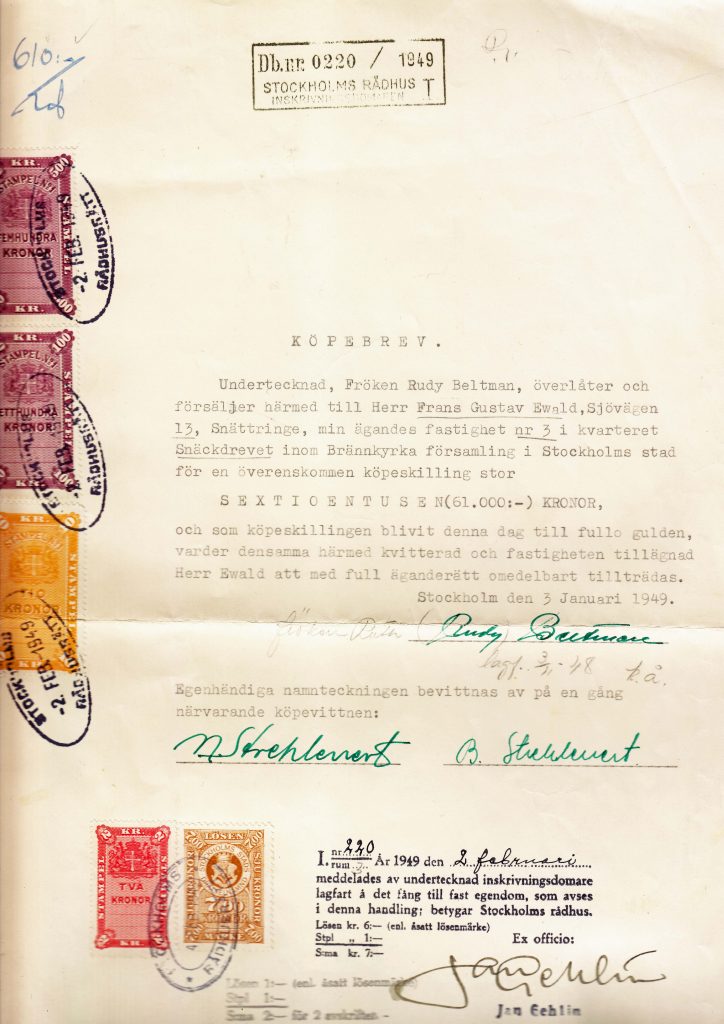 610:-
Db.nr. 0220 / 1949
STOCKHOLMS RÅDHUS T
INSKRIVNINGSDOMAREN
KR. 500
STAMPEL
FEMHUNDRA
KRONOR
KR.
STOCKHOLMS
-2. FEB. 1949
RÅDHUSRÄTT
KR. 100
STAMPEL
ETTHUNDRA
KRONOR
KR. 100
STOCKHOLMS
-2. FEB. 1949
RÅDHUSRÄTT
KR.
STAMPEL
TIO
KRONOR
KR.
STOCKHOLMS
-2. FEB. 1949
RÅDHUSRÄTT
KÖPEBREV.
Undertecknad, Fröken Rudy Beltman, överlåter och
försäljer härmed till Herr Frans Gustav Ewald,Sjövägen
13, Snättringe, min ägandes fastighet nr 3 i kvarteret
Snäckdrevet inom Brännkyrka församling i Stockholms stad
för en överenskommen köpeskilling stor
SEXTIOENTUSEN(61.000:-) KRONOR,
och som köpeskillingen blivit denna dag till fullo gulden,
varder densamma härmed kvitterad och fastigheten tillägnad
Herr Ewald att med full äganderätt omedelbart tillträdas.
Stockholm den 3 Januari 1949.
(Rudy) Beltman
lagf. 48
Egenhändiga namnteckningen bevittnas av på en gång
närvarande köpevittnen:
N. Strehlenert B. Strehlenert
KR. 2
STAMPEL
TVÅ
KRONOR
KR.
LÖSEN
KRONOR
I. nr 220
rum År 1949 den 2 februari
meddelades av undertecknad inskrivningsdomare
lagfart å det fång till fast egendom, som avses
i denna handling; betygar Stockholms rådhus.
Lösen kr. 6:— (enl. åsatt lösenmärke)
Stpl „ 1:—
S:ma kr. 7:—
Ex officio:
Jan Gehlin
Lösen 1:— (enl. åsatt lösenmärke)
Stpl 1:—
S:ma 2:— för 2 avskriften.-
Jan Gehlin